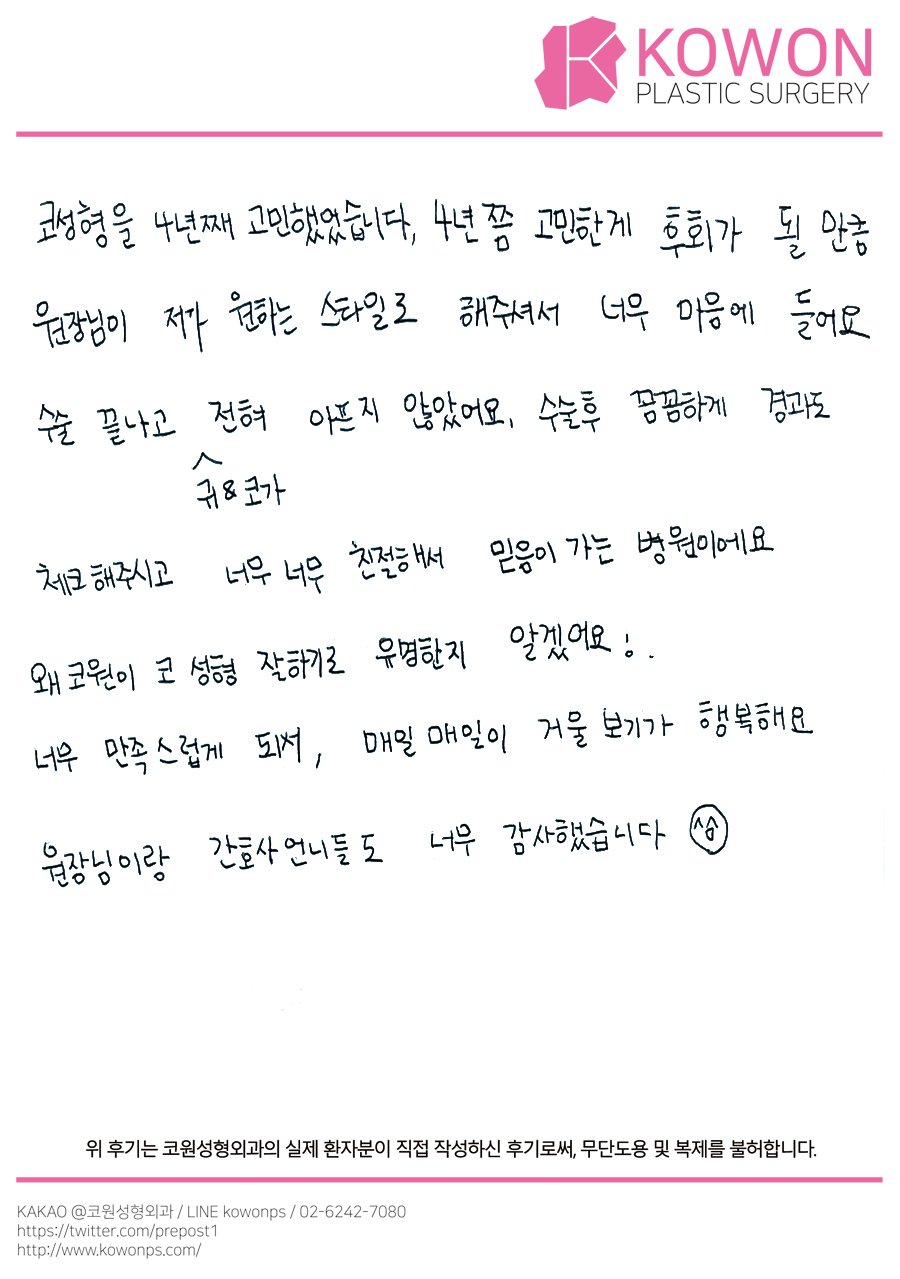 KOWON
PLASTIC SURGERY
코성형을 4년째 고민했었습니다, 4년쯤 고민한게 후회가 될 만큼
원장님이 저가 원하는 스타일로 해주셔서 너무 마음에 들어요
수술 끝나고 전혀 아프지 않았어요, 수술후 꼼꼼하게 경과도
귀&코가
체크해주시고 너무너무 친절해서 믿음이 가는 병원이에요
왜 코원이 코 성형 잘하기로 유명한지 알겠어요!.
너무 만족스럽게 되서, 매일매일이 거울 보기가 행복해요
원장님이랑 간호사언니들도 너무 감사했습니다 ^^
위 후기는 코원성형외과의 실제 환자분이 직접 작성하신 후기로써, 무단도용 및 복제를 불허합니다.
KAKAO @코원성형외과 / LINE kowonps / 02-6242-7080
https://twitter.com/prepost1
http://www.kowonps.com/